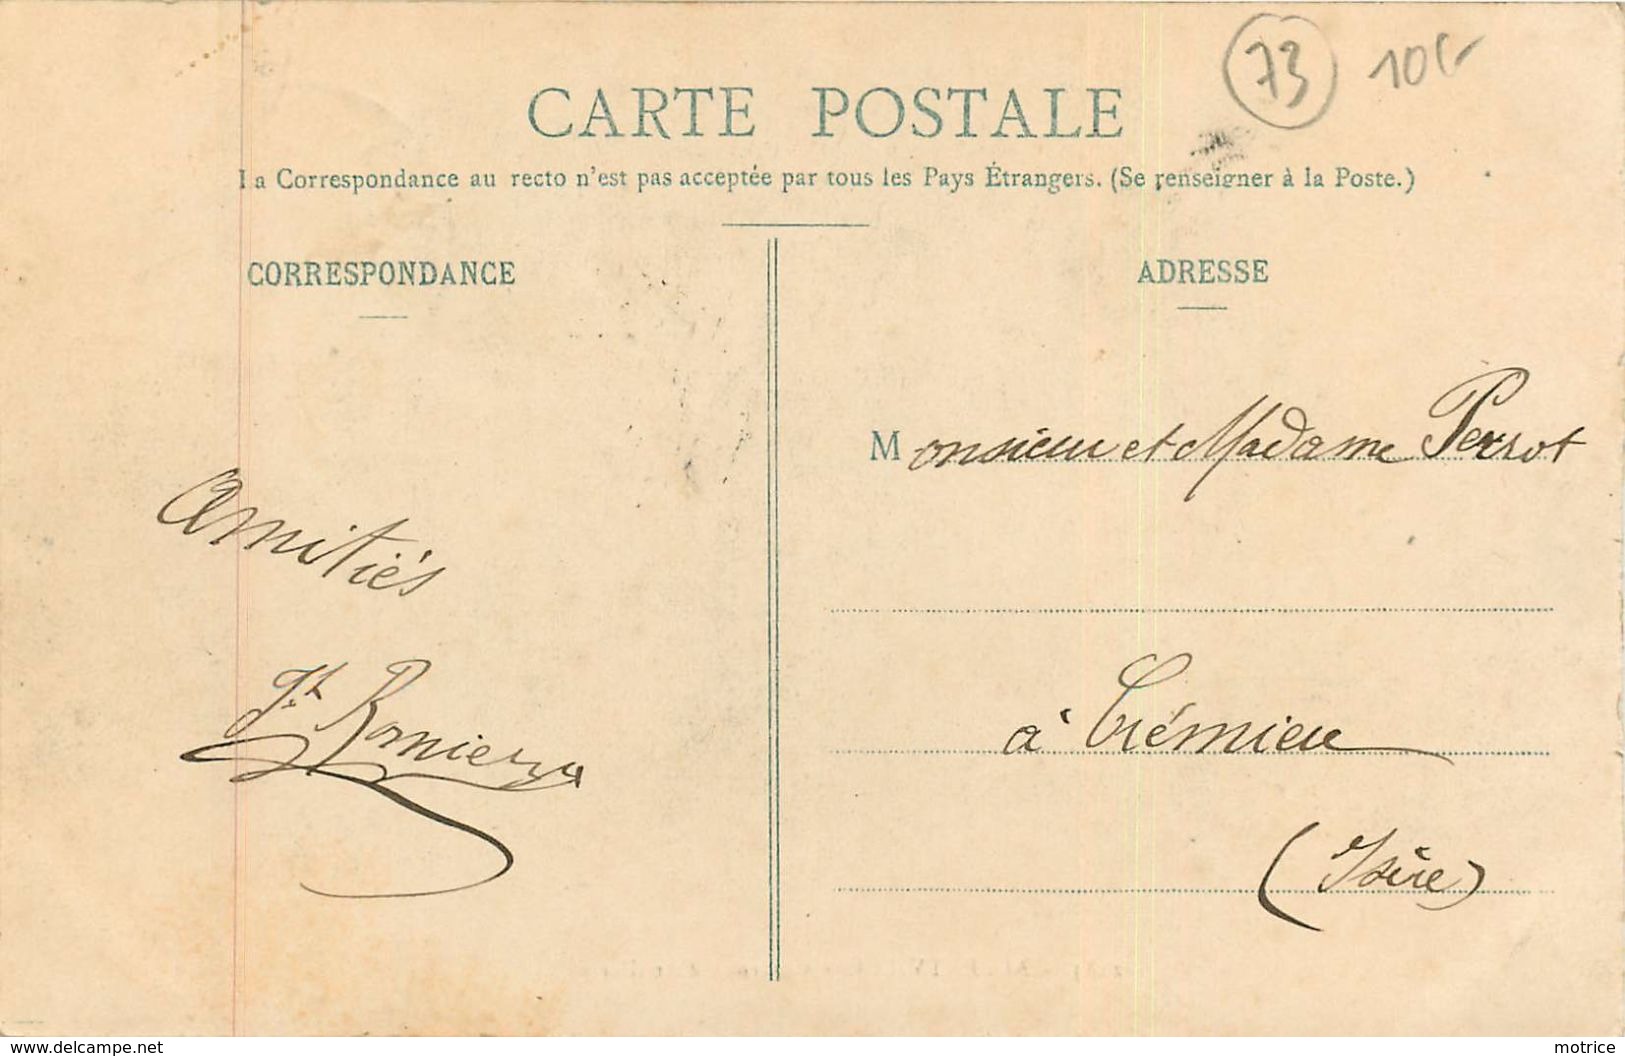 73
CARTE POSTALE
La Correspondance au recto n'est pas acceptée par tous les Pays Étrangers. (Se renseigner à la Poste.)
CORRESPONDANCE
ADRESSE
Monsieur et Madame Perrot
Amitiés
à Crémieu
Jh Romier
(Isère)
www.delcampe.net
motrice